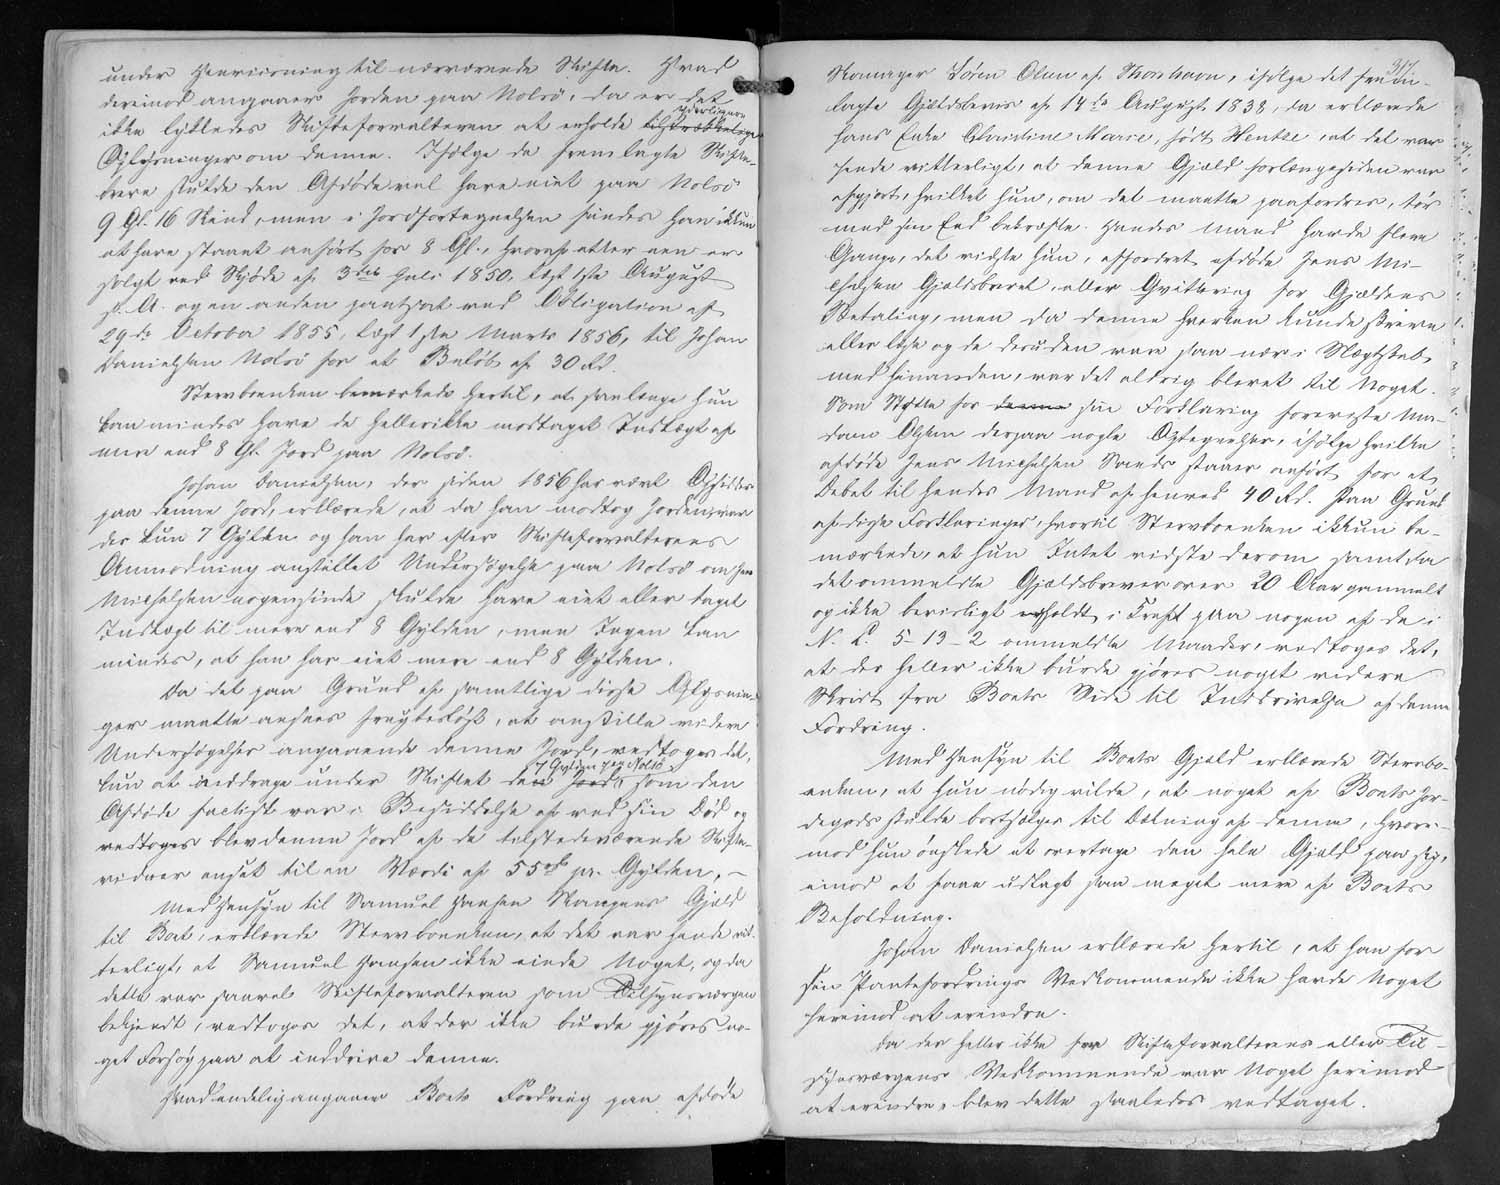 under Henviisning til nærværende Skifte. Hvad
derimod angaaer Jorden paa Nolsö, da er det
ikke lykkedes Skifteforvalteren at erholde tilstrækkelige yderligere
Oplysninger om denne. Ifølge de fremlagte Skifte-
breve skulde den Afdøde vel have eiet paa Nolsö
9 Gl. 16 Skind, men i Jordfortegnelsen findes han ikkun
at have staaet anført for 8 Gl., hvoraf atter een er
solgt ved Skjøde af 3die Juli 1850, læst 1ste August
s. A. og en anden pantsat ved Obligation af
29de October 1855, læst 1ste Marts 1856, til Johan
Danielsen Nolsö for et Beløb af 30 Rd.
Stervboenken bemærkede hertil, at saalænge hun
kan mindes have de heller ikke modtaget Indtægt af
mere end 8 Gl. Jord paa Nolsö.
Johan Danielsen, der siden 1856 har været Opsidder
paa denne Jord, erklærede, at da han modtog Jorden, var
der kun 7 Gylden og han har efter Skifteforvalterens
Anmodning anstillet Undersøgelse paa Nolsö om Jens
Michelsen nogensinde skulde have eiet eller taget
Indtægt til mere end 8 Gylden, men Ingen kan
mindes, at han har eiet mere end 8 Gylden.
Da det paa Grund af samtlige disse Oplysnin-
ger maatte ansees frugtesløst, at anstille videre
Undersøgelser angaaende denne Jord, vedtoges det,
kun at inddrage under Skiftet den Jord, 7 Gylden paa Nolsö, som den
Afdøde factisk var i Besiddelse af ved sin Død og
vedtoges blev denne Jord af de tilstedeværende Skifte-
vidner ansat til en Værdi af 55 Rd pr. Gylden. –
Med Hensyn til Samuel Hansen Mangens Gjæld
til Boet, erklærede Stervboenken, at det var hende vit-
terligt, at Samuel Hansen ikke eiede Noget, og da
dette var saavel Skifteforvalteren som Tilsynsværgen
bekjendt, vedtoges det, at der ikke burde gjøres no-
get Forsøg paa at inddrive denne.
Hvad endelig angaaer Boets Fordring paa afdøde
317.
Skomager Sören Olsen af Thorshavn, ifølge det frem-
lagte Gjældsbevis af 14de August 1838, da erklærede
hans Enke Christine Marie, født Hentze, at det var
hende vitterligt, at denne Gjæld forlængesiden var
afgjort, hvilket hun, om det maatte paafordres, tør
med sin Eed bekræfte. Hendes Mand havde flere
Gange, det vidste hun, affordret afdøde Jens Mi-
chelsen Gjældsbrevet, eller Qvittering for Gjældens
Betaling, men da denne hverken kunde skrive
eller læse og de desuden vare saa nær i Slægtskab
med hinanden, var det aldrig blevet til Noget.
Som Støtte for denne sin Forklaring foreviste Ma-
dam Olsen derpaa nogle Optegnelser, ifølge hvilke
afdøde Jens Michelsen Sands staaer anført for et
Debet til hendes Mand af henved 40 Rd. Paa Grund
af disse Forklaringer, hvortil Stervboenken ikkun be-
mærkede, at hun Intet vidste derom samt da
det ommeldte Gjældsbrev er over 20 Aar gammelt
og ikke beviisligt erholdt i Kraft paa nogen af de i
N. L. 5-13-2 ommeldte Maader, vedtoges det,
at der heller ikke burde gjøres noget videre
Skridt fra Boets Side til Inddrivelse af denne
Fordring.
Med Hensyn til Boets Gjæld erklærede Stervbo-
enken, at hun nødig vilde, at noget af Boets Jor-
degods skulde bortsælges til Dækning af denne, hvori-
mod hun ønskede at overtage den hele Gjæld paa sig,
imod at faae udlagt saa meget mere af Boets
Beholdning.
Johan Danielsen erklærede hertil, at han for
sin Pantefordrings Vedkommende ikke havde Noget
herimod at erindre.
Da der heller ikke fra Skifteforvalterens eller Til-
synsværgens Vedkommende var Noget herimod
at erindre, blev dette saaledes vedtaget.